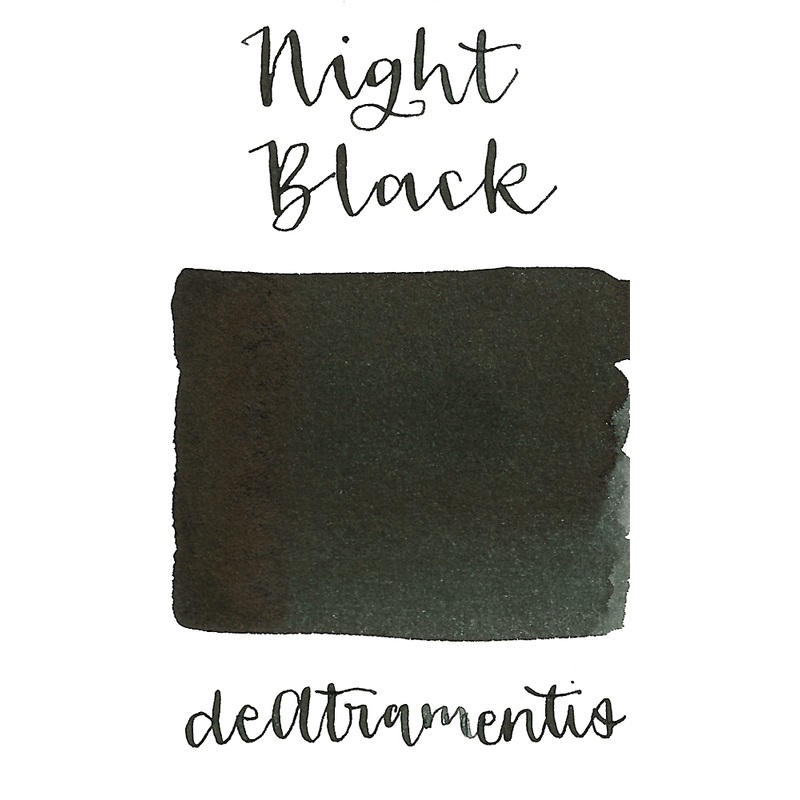 Night
Black
deAtramentis